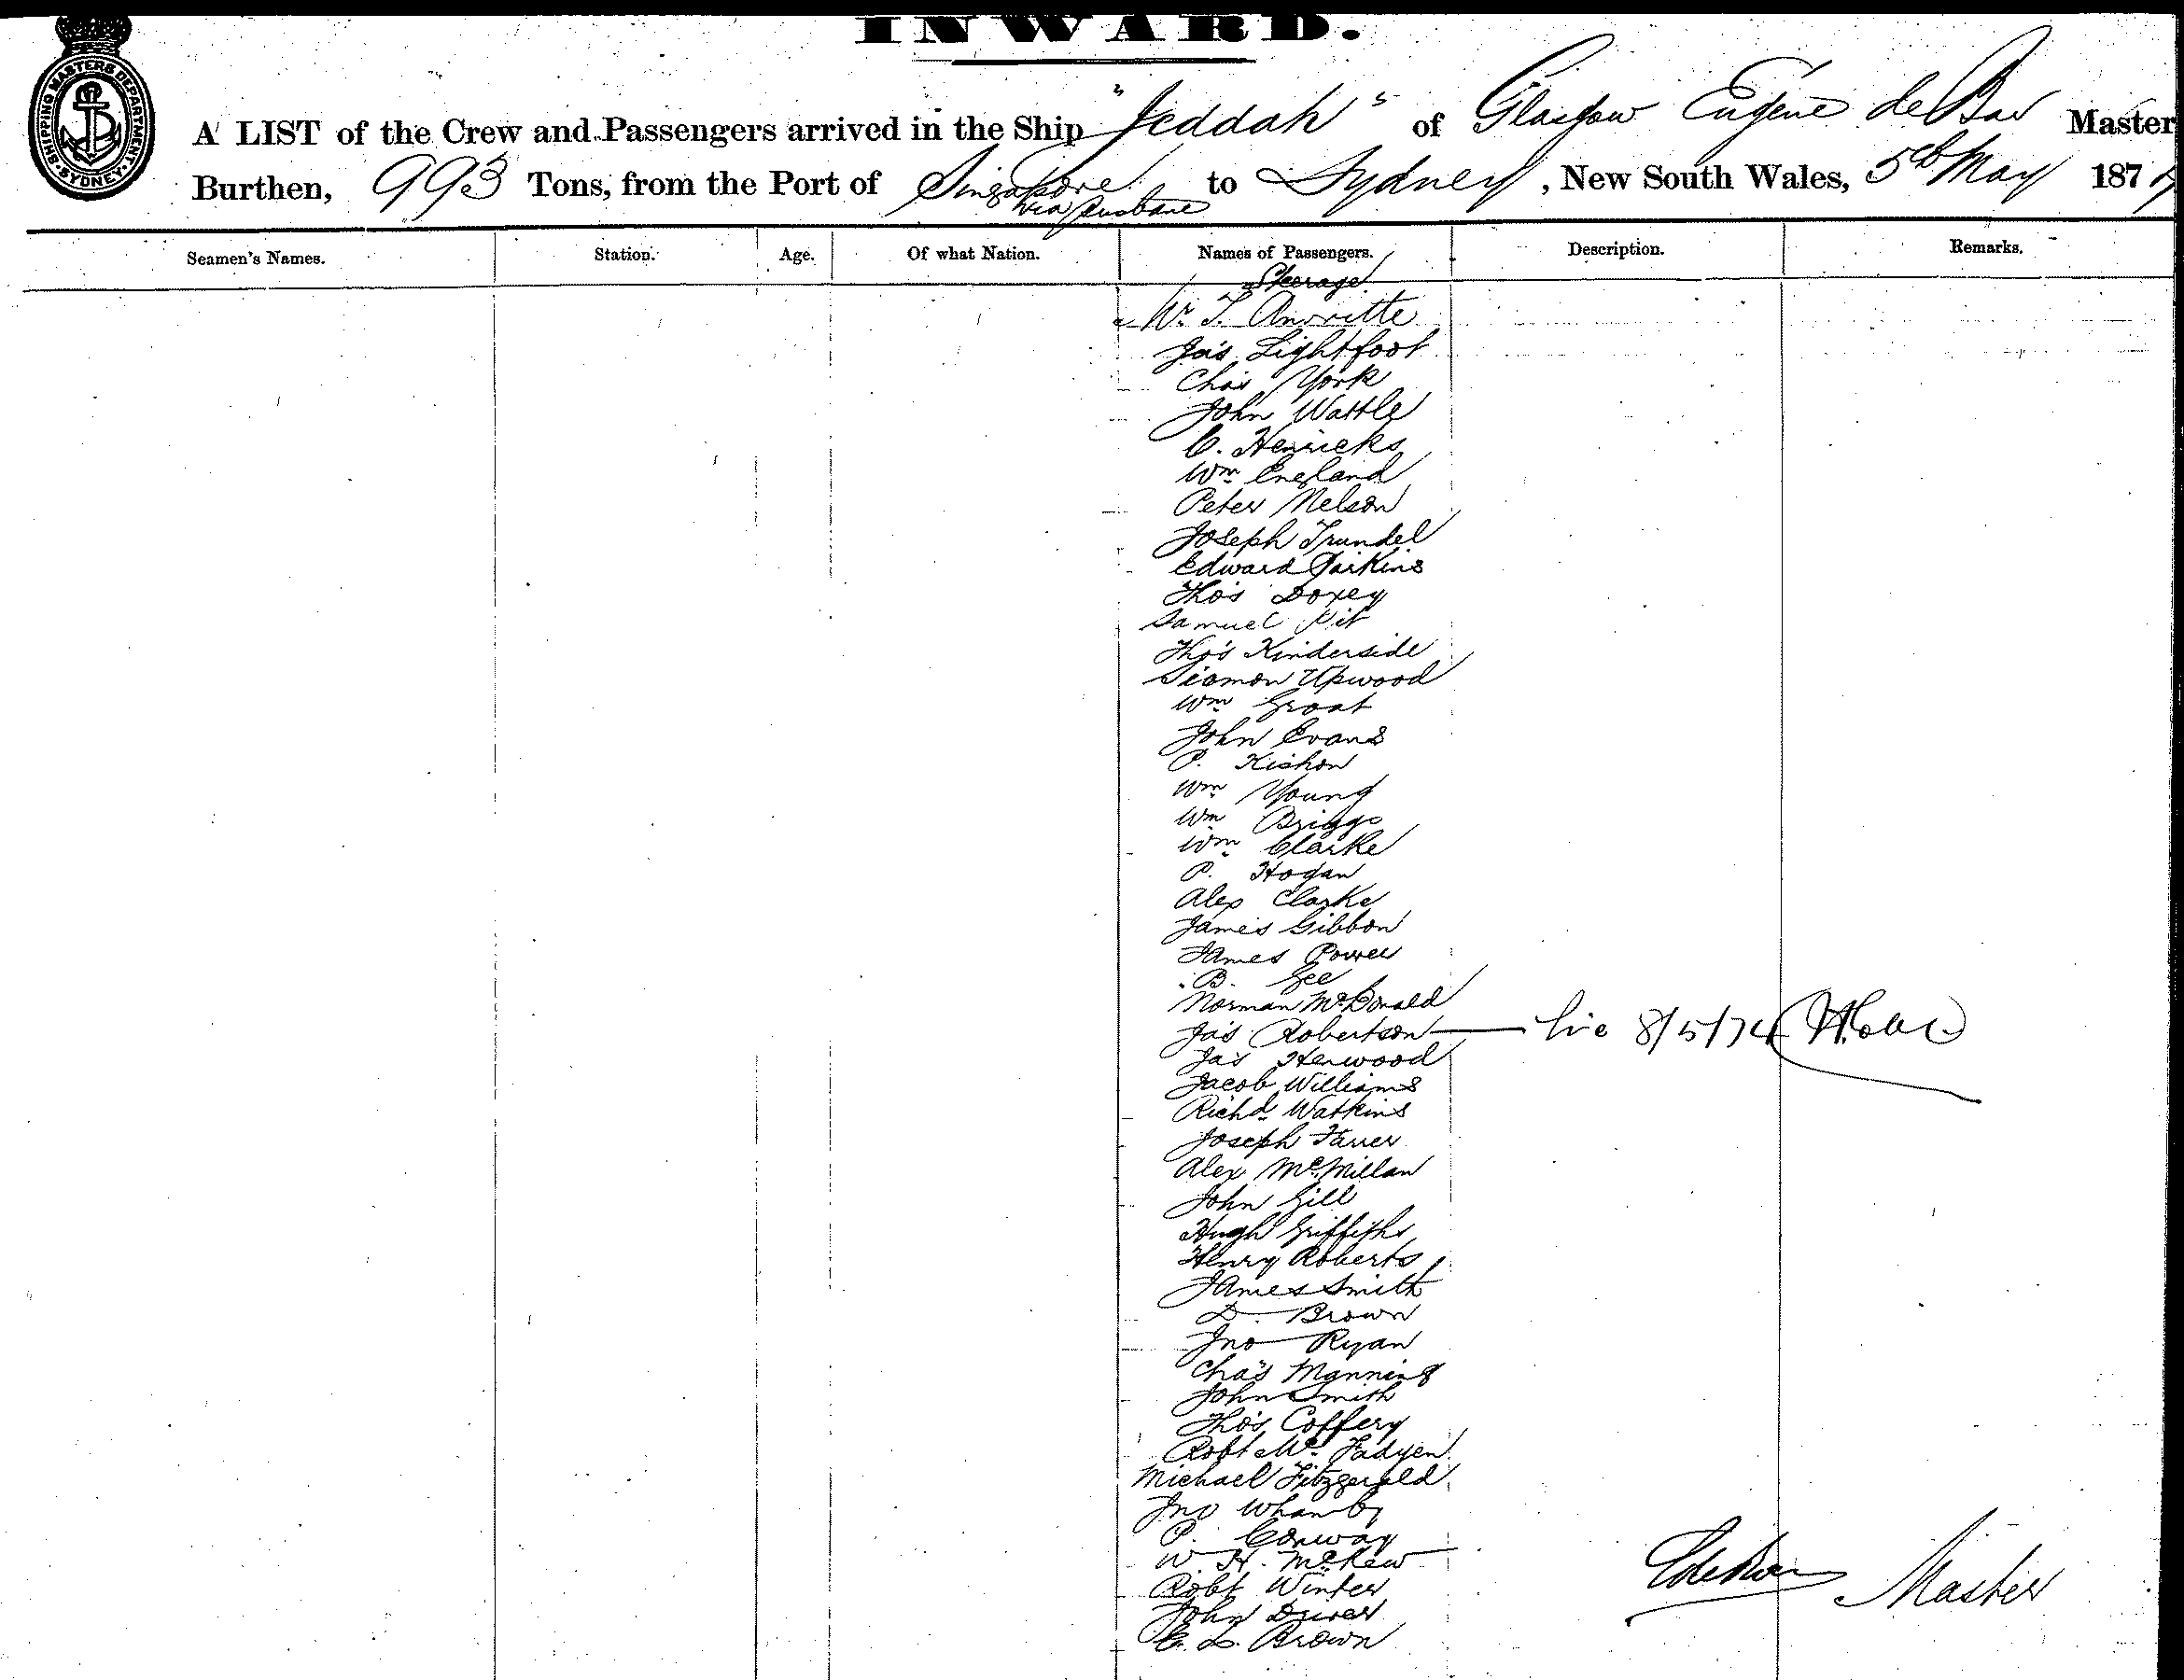 INWARD.
SHIPPING MASTERS DEPARTMENT SYDNEY
A LIST of the Crew and Passengers arrived in the Ship "Jeddah" of Glasgow Eugene de Bar Master
Burthen, 993 Tons, from the Port of Singapore to Sydney, New South Wales, 5th May 1874
via Brisbane
Seamen's Names. Station. Age. Of what Nation. Names of Passengers. Description. Remarks.
Steerage
Jas Lightfoot
Chas York
John Wattle
C. Henricks
Wm England
Peter Nelson
Joseph Trundel
Edward
Thos Doxey
Samuel
Thos Kinderside
Upwood
Wm Groat
John Evans
P. Kishon
Wm Young
Wm Briggs
Wm Clarke
P. Hogan
Alex Clarke
James Gibbon
James Power
B. Gee
Norman McDonald
Jas Robertson 8/5/74
Jas Henwood
Jacob Williams
Richd Watkins
Joseph
Alex McMillan
John Gill
Hugh Griffiths
Henry Roberts
James Smith
D. Brown
Jno Ryan
Chas Manning
John Smith
Thos Coffery
Robt Mc Fadyen
Michael Fitzgerald
Jno Whamby
P. Conway
W. H. McKew
Robt Winter
John Driver
C. L. Brown
Master